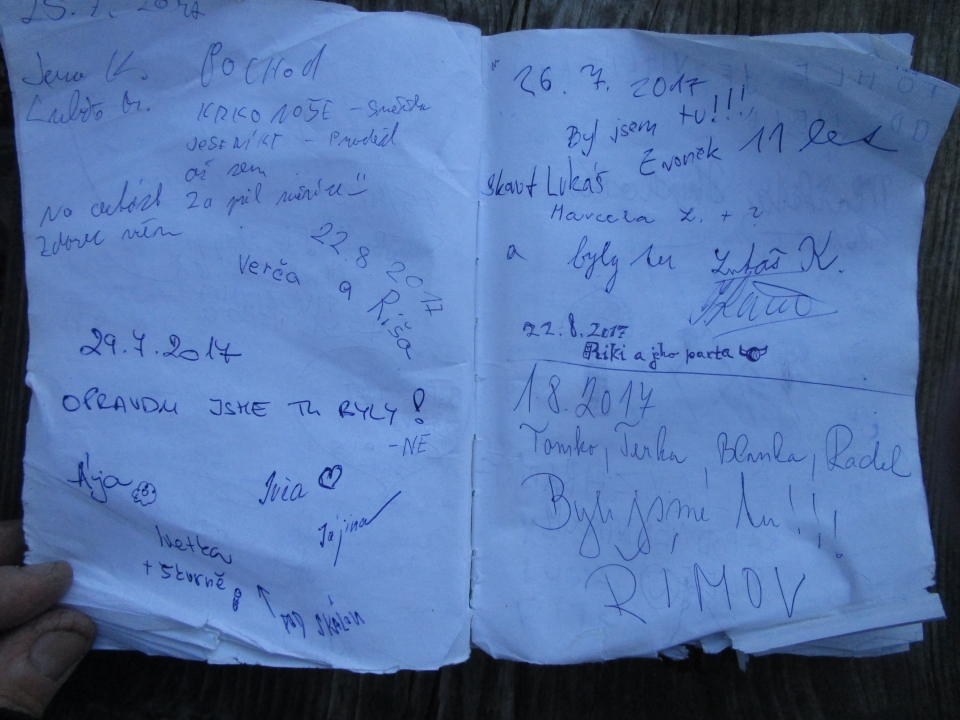 25.7. 2017
Jena K. POCHOD
KRKONOŠE – Sněžka
JESENÍKY – Praděd
až sem
Za půl měsíce
22.8 2017
Verča a Ríša
29.7.2017
OPRAVDU JSME TU BYLY!
-NE
Ája
Ivia
Jájina
Ivetka
+ Skvrně
POD SKÁLOU
26. 7. 2017
Byl jsem tu!!!
Zvoněk 11 let
skaut Lukáš
Marcela Z. + ?
a byly tu Lukáš K.
22.8.2017
Riki a jeho parta
1.8.2017
Tomko, Terka, Blanka, Radel
Byli jsme tu!!!
ŘÍMOV